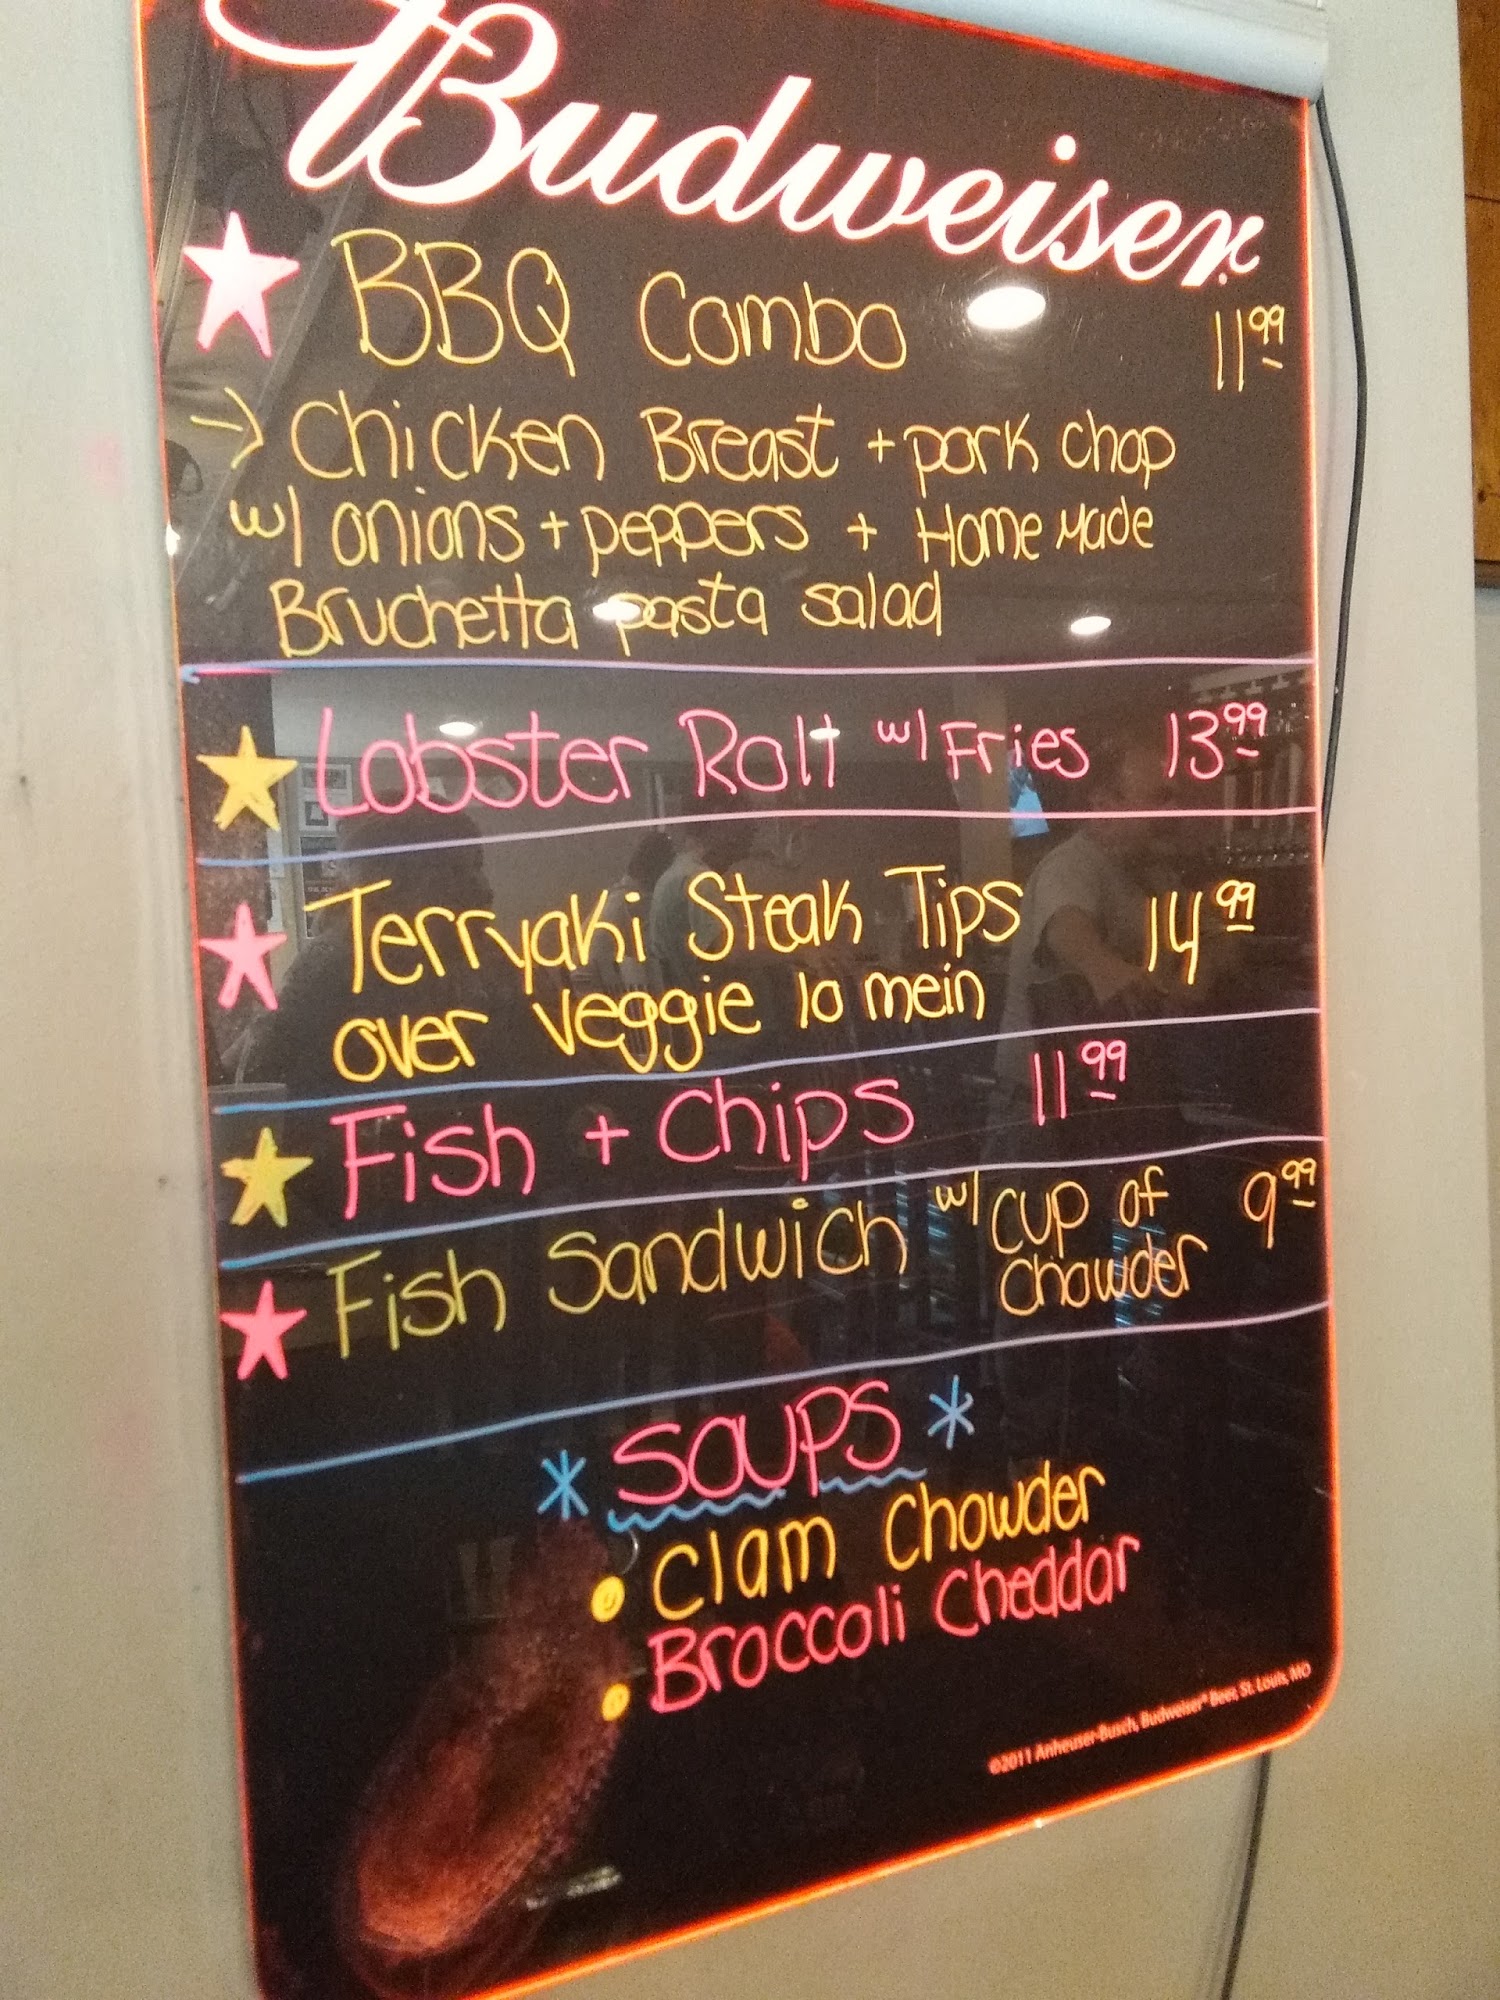 Budweiser
BBQ Combo 11.99
→ Chicken Breast + pork chop
w/ onions + peppers + Home Made
Bruchetta pasta salad
Lobster Roll w/ Fries 13.99
Terryaki Steak Tips 14.99
over veggie lo mein
Fish + Chips 11.99
Fish Sandwich w/ cup of 9.99
chowder
* SOUPS *
• Clam Chowder
• Broccoli Cheddar
©2011 Anheuser-Busch, Budweiser® Beer, St. Louis, MO